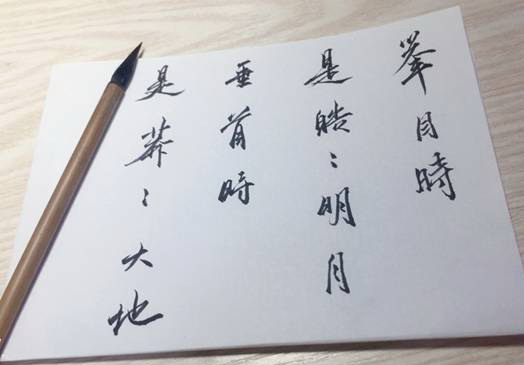 举目時
是皓々明月
垂首時
是莽々大地